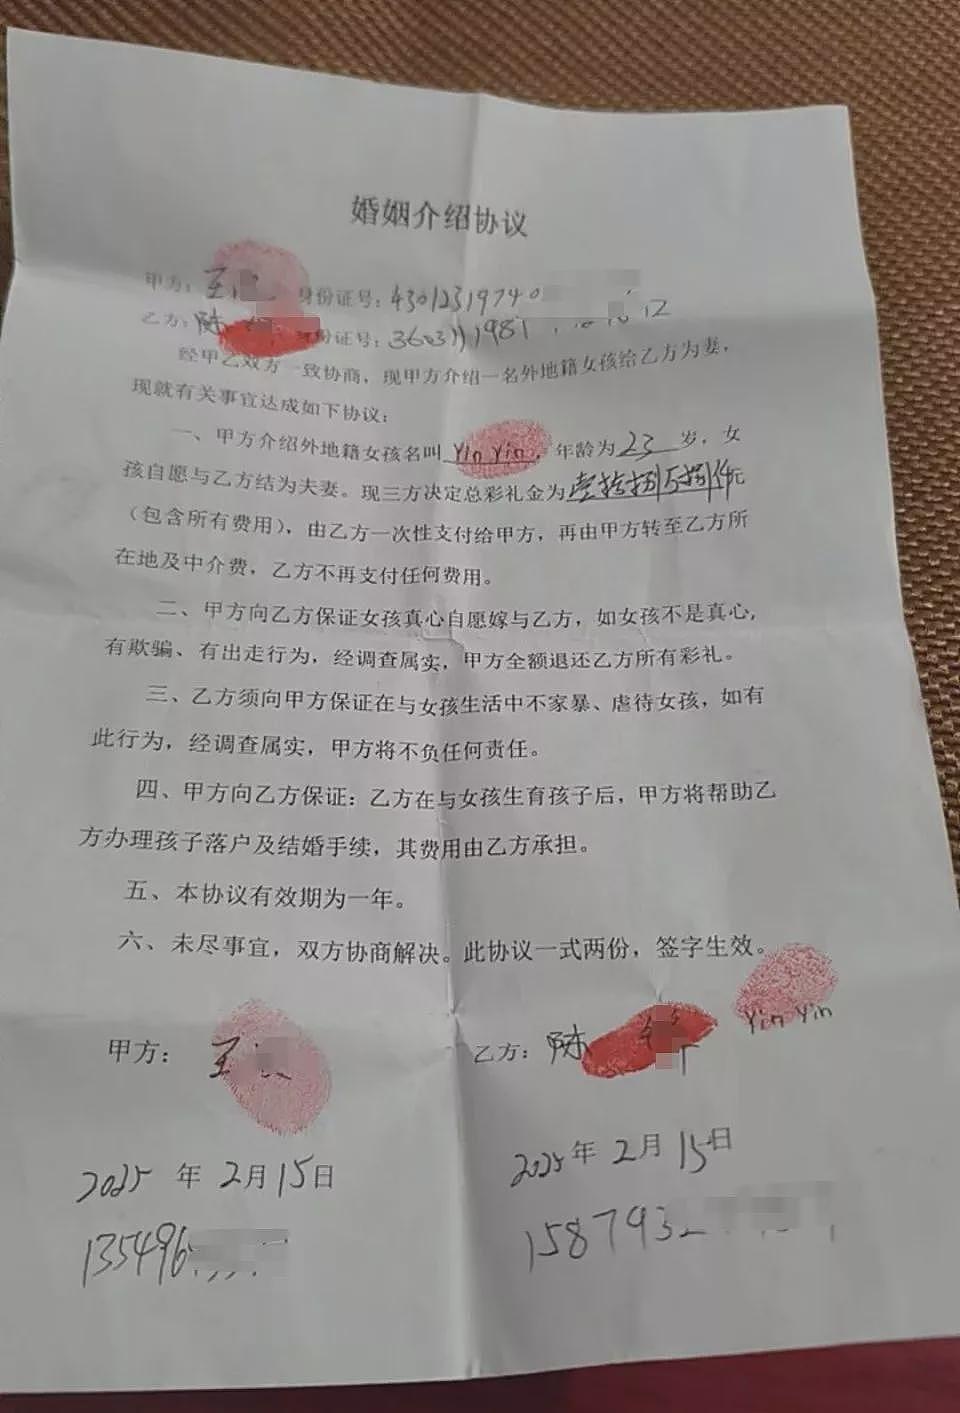 婚姻介绍协议
甲方：王 身份证号：43012319740
乙方：陈 身份证号：3603111981 12
经甲乙双方一致协商，现甲方介绍一名外地籍女孩给乙方为妻，
现就有关事宜达成如下协议：
一、甲方介绍外地籍女孩名叫 Yin Yin，年龄为 23 岁，女
孩自愿与乙方结为夫妻。现三方决定总彩礼金为壹拾捌万捌仟元
（包含所有费用），由乙方一次性支付给甲方，再由甲方转至乙方所
在地及中介费，乙方不再支付任何费用。
二、甲方向乙方保证女孩真心自愿嫁与乙方，如女孩不是真心,
有欺骗、有出走行为，经调查属实，甲方全额退还乙方所有彩礼。
三、乙方须向甲方保证在与女孩生活中不家暴、虐待女孩，如有
此行为，经调查属实，甲方将不负任何责任。
四、甲方向乙方保证：乙方在与女孩生育孩子后，甲方将帮助乙
方办理孩子落户及结婚手续，其费用由乙方承担。
五、本协议有效期为一年。
六、未尽事宜，双方协商解决。此协议一式两份，签字生效。
甲方：王 乙方：陈 Yin Yin
2025 年 2 月 15 日 2025 年 2 月 15 日
135496 1587932